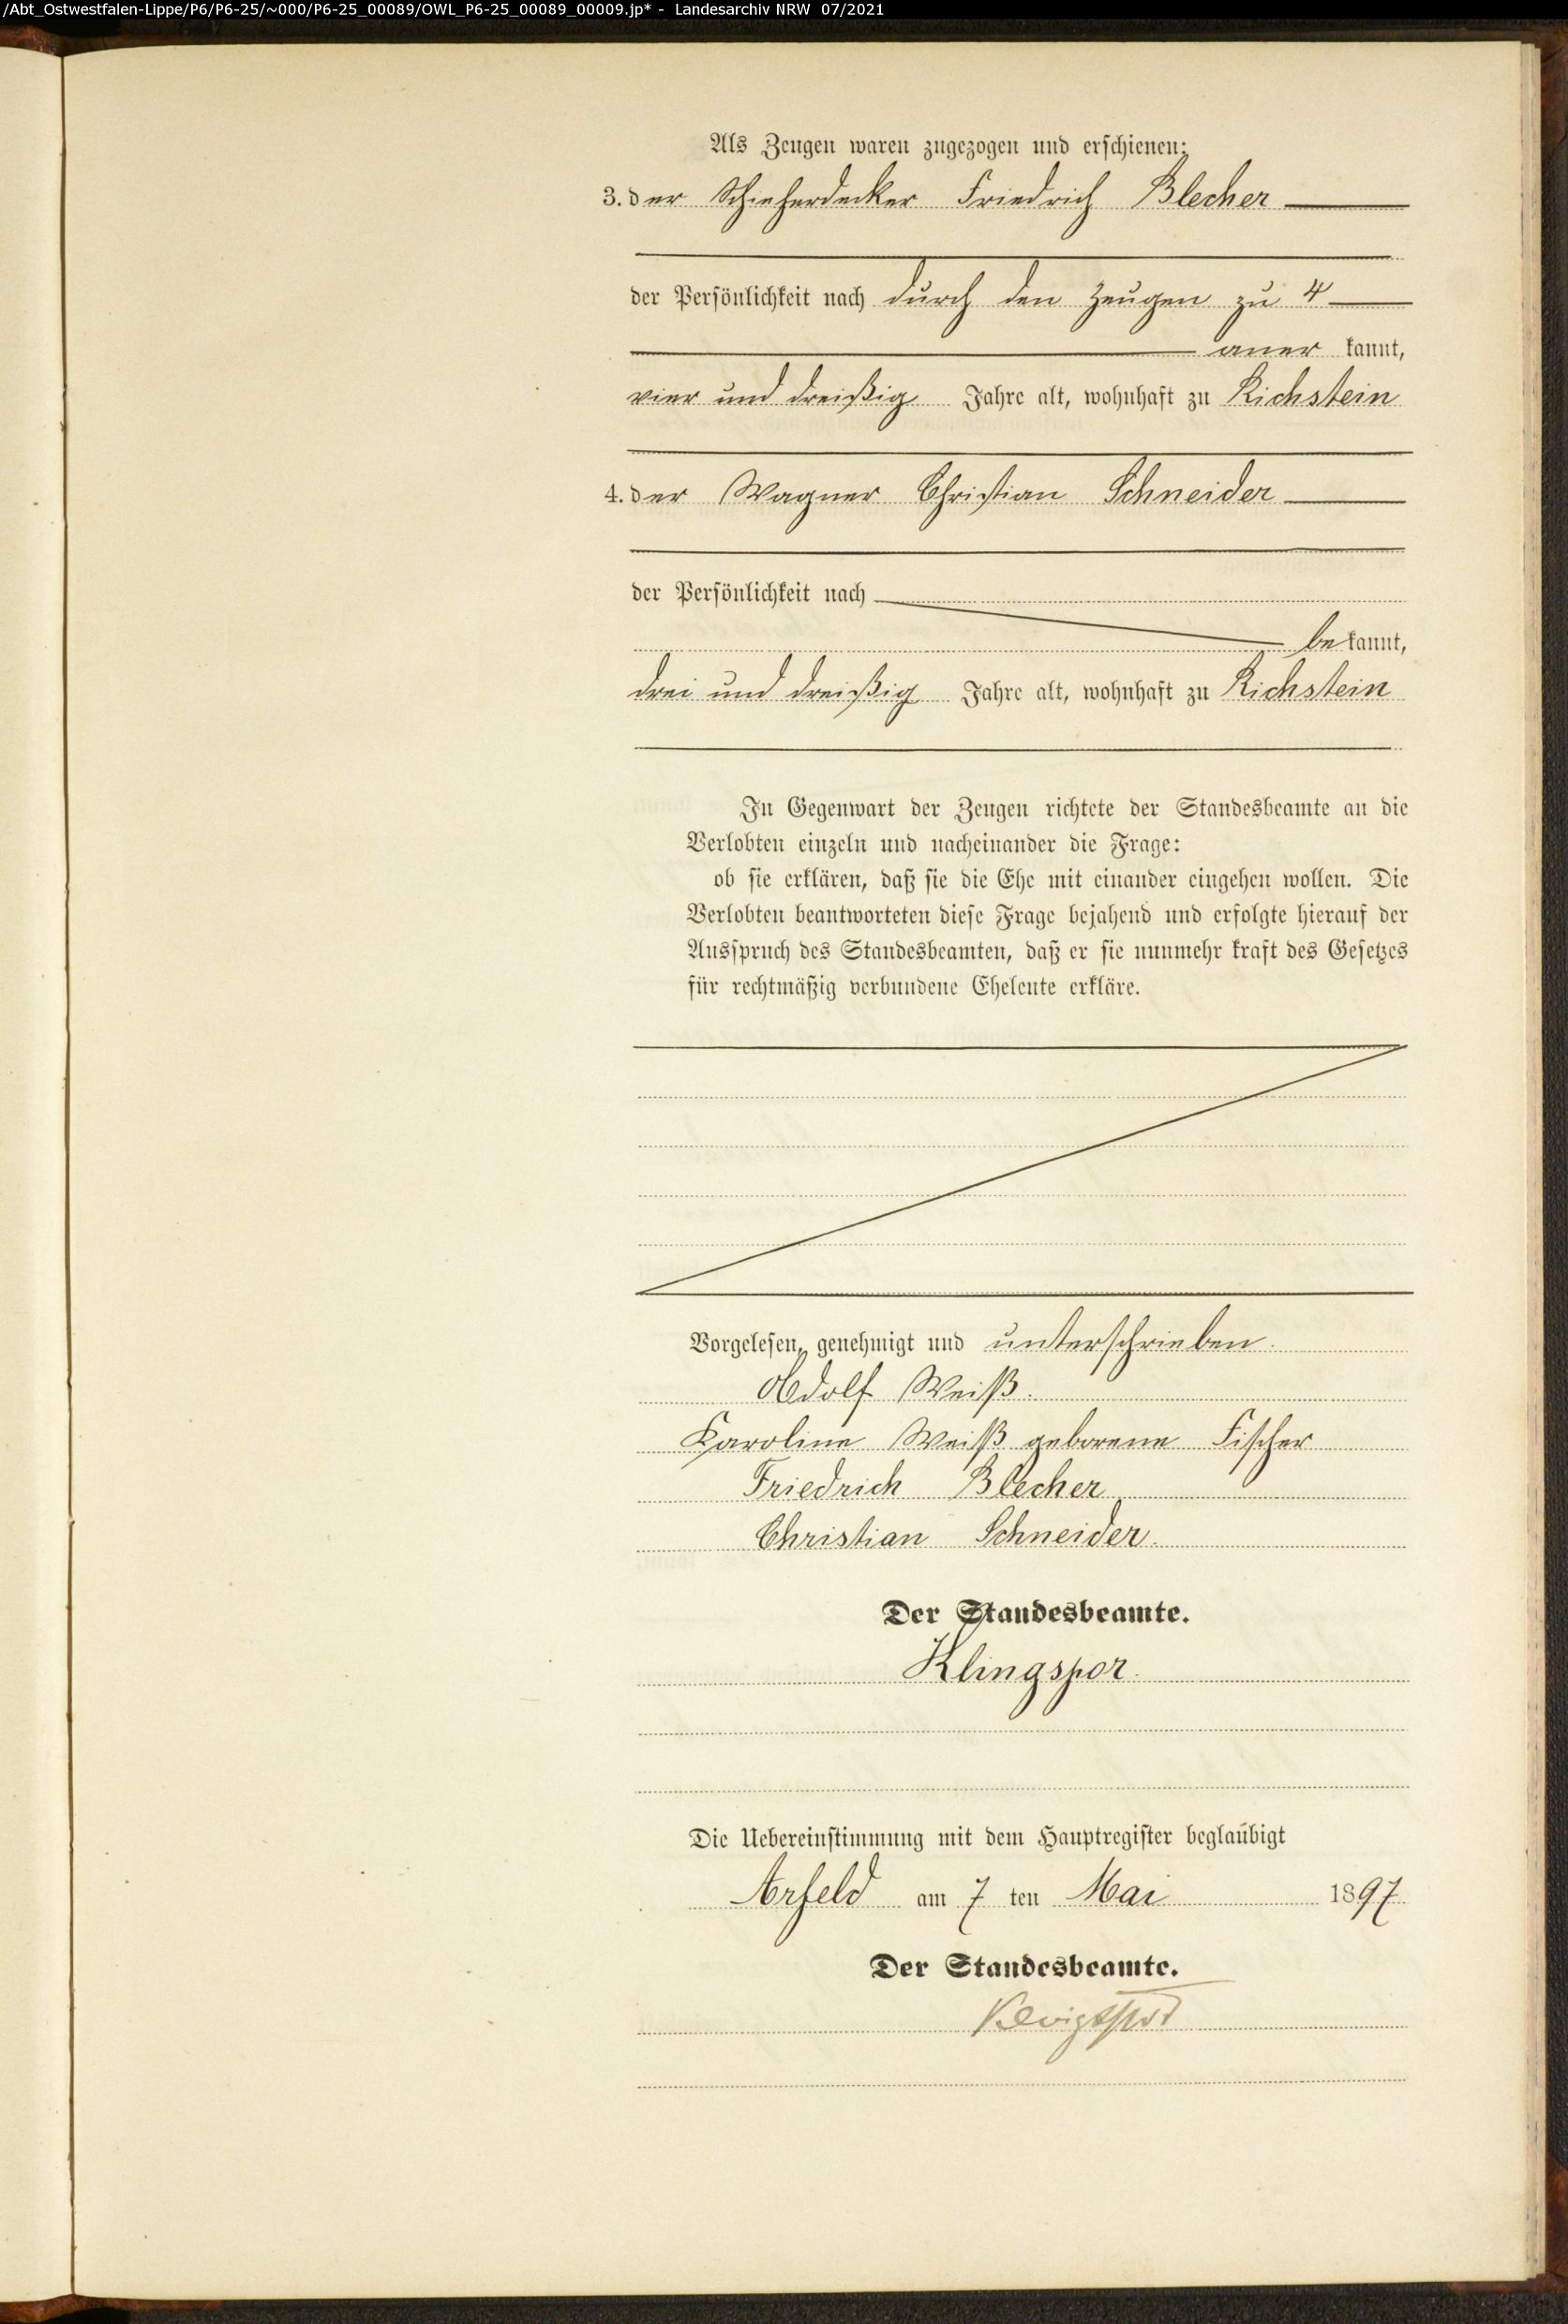 /Abt_Ostwestfalen-Lippe/P6/P6-25/~000/P6-25_00089/OWL_P6-25_00089_00009.jp* - Landesarchiv NRW 07/2021
Als Zeugen waren zugezogen und erschienen:
3. der Schieferdecker Friedrich Blecher
der Persönlichkeit nach durch den Zeugen zu 4
aner kannt,
vier und dreißig Jahre alt, wohnhaft zu Richstein
4. der Wagner Christian Schneider
der Persönlichkeit nach
be kannt,
drei und dreißig Jahre alt, wohnhaft zu Richstein
In Gegenwart der Zeugen richtete der Standesbeamte an die
Verlobten einzeln und nacheinander die Frage:
ob sie erklären, daß sie die Ehe mit einander eingehen wollen. Die
Verlobten beantworteten diese Frage bejahend und erfolgte hierauf der
Ausspruch des Standesbeamten, daß er sie nunmehr kraft des Gesetzes
für rechtmäßig verbundene Eheleute erkläre.
Vorgelesen, genehmigt und unterschrieben.
Adolf Weiß.
Karoline Weiß geborene Fischer
Friedrich Blecher
Christian Schneider.
Der Standesbeamte.
Klingspor.
Die Uebereinstimmung mit dem Hauptregister beglaubigt
Arfeld am 7 ten Mai 1897
Der Standesbeamte.
Klingspor